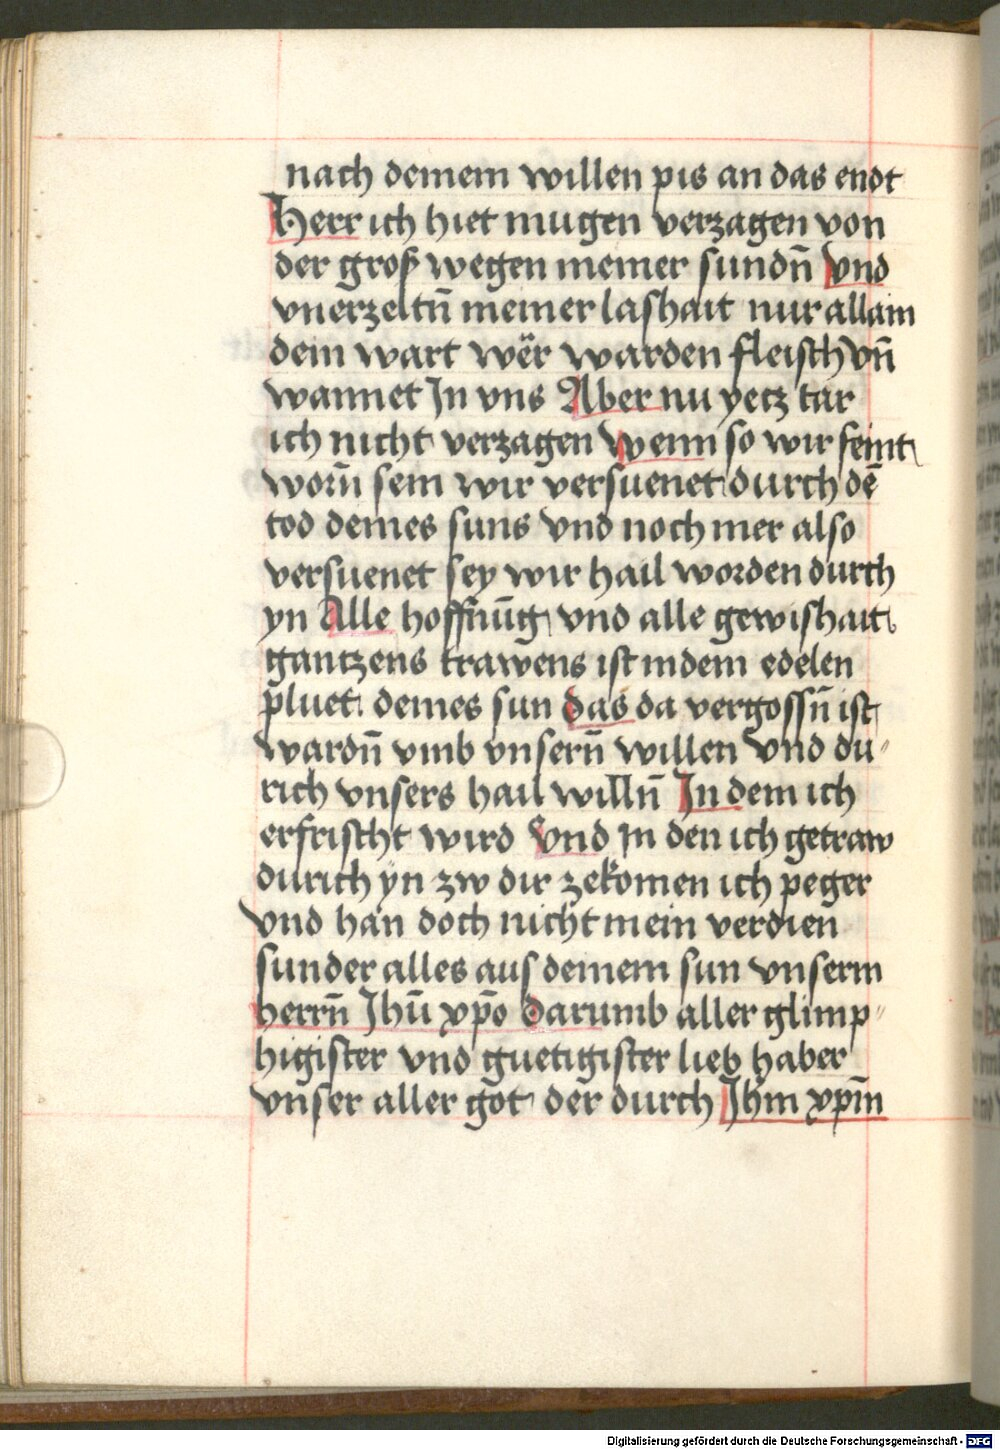 nach deinem willen pis an das endt
Herr ich hiet mugen verzagen von
der groß wegen meiner sundn̄ vnd
vnerzeltn̄ meiner lashait nur allain
dein wart wër warden fleisch vn̄
wannet In vns Aber nu yetz tar
ich nicht verzagen wenn so wir feint
worn̄ sein wir versuenet durch dē
tod deines suns vnd noch mer also
versuenet sey wir hail worden durch
yn Alle hoffnūg vnd alle gewishait
gantzens trawens ist in dem edelen
pluet deines sun das da vergossn̄ ist
wardn̄ vmb vnsern̄ willen vnd du〃
rich vnsers hail willn̄ In dem ich
erfrischt wird vnd in den ich getraw
durich yn zw dir zekomen ich peger
vnd han doch nicht mein verdien
sunder alles aus deinem sun vnserm
herrn̄ Jhū xp̄o darumb aller glimp〃
higister vnd guetigister lieb haber
vnser aller got der durch Jhm xpm̄
Digitalisierung gefördert durch die Deutsche Forschungsgemeinschaft - DFG